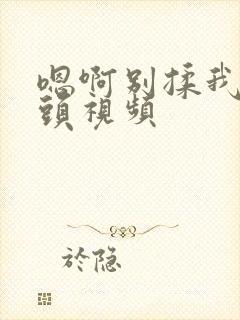 嗯啊别揉我
頭視頻
於隐